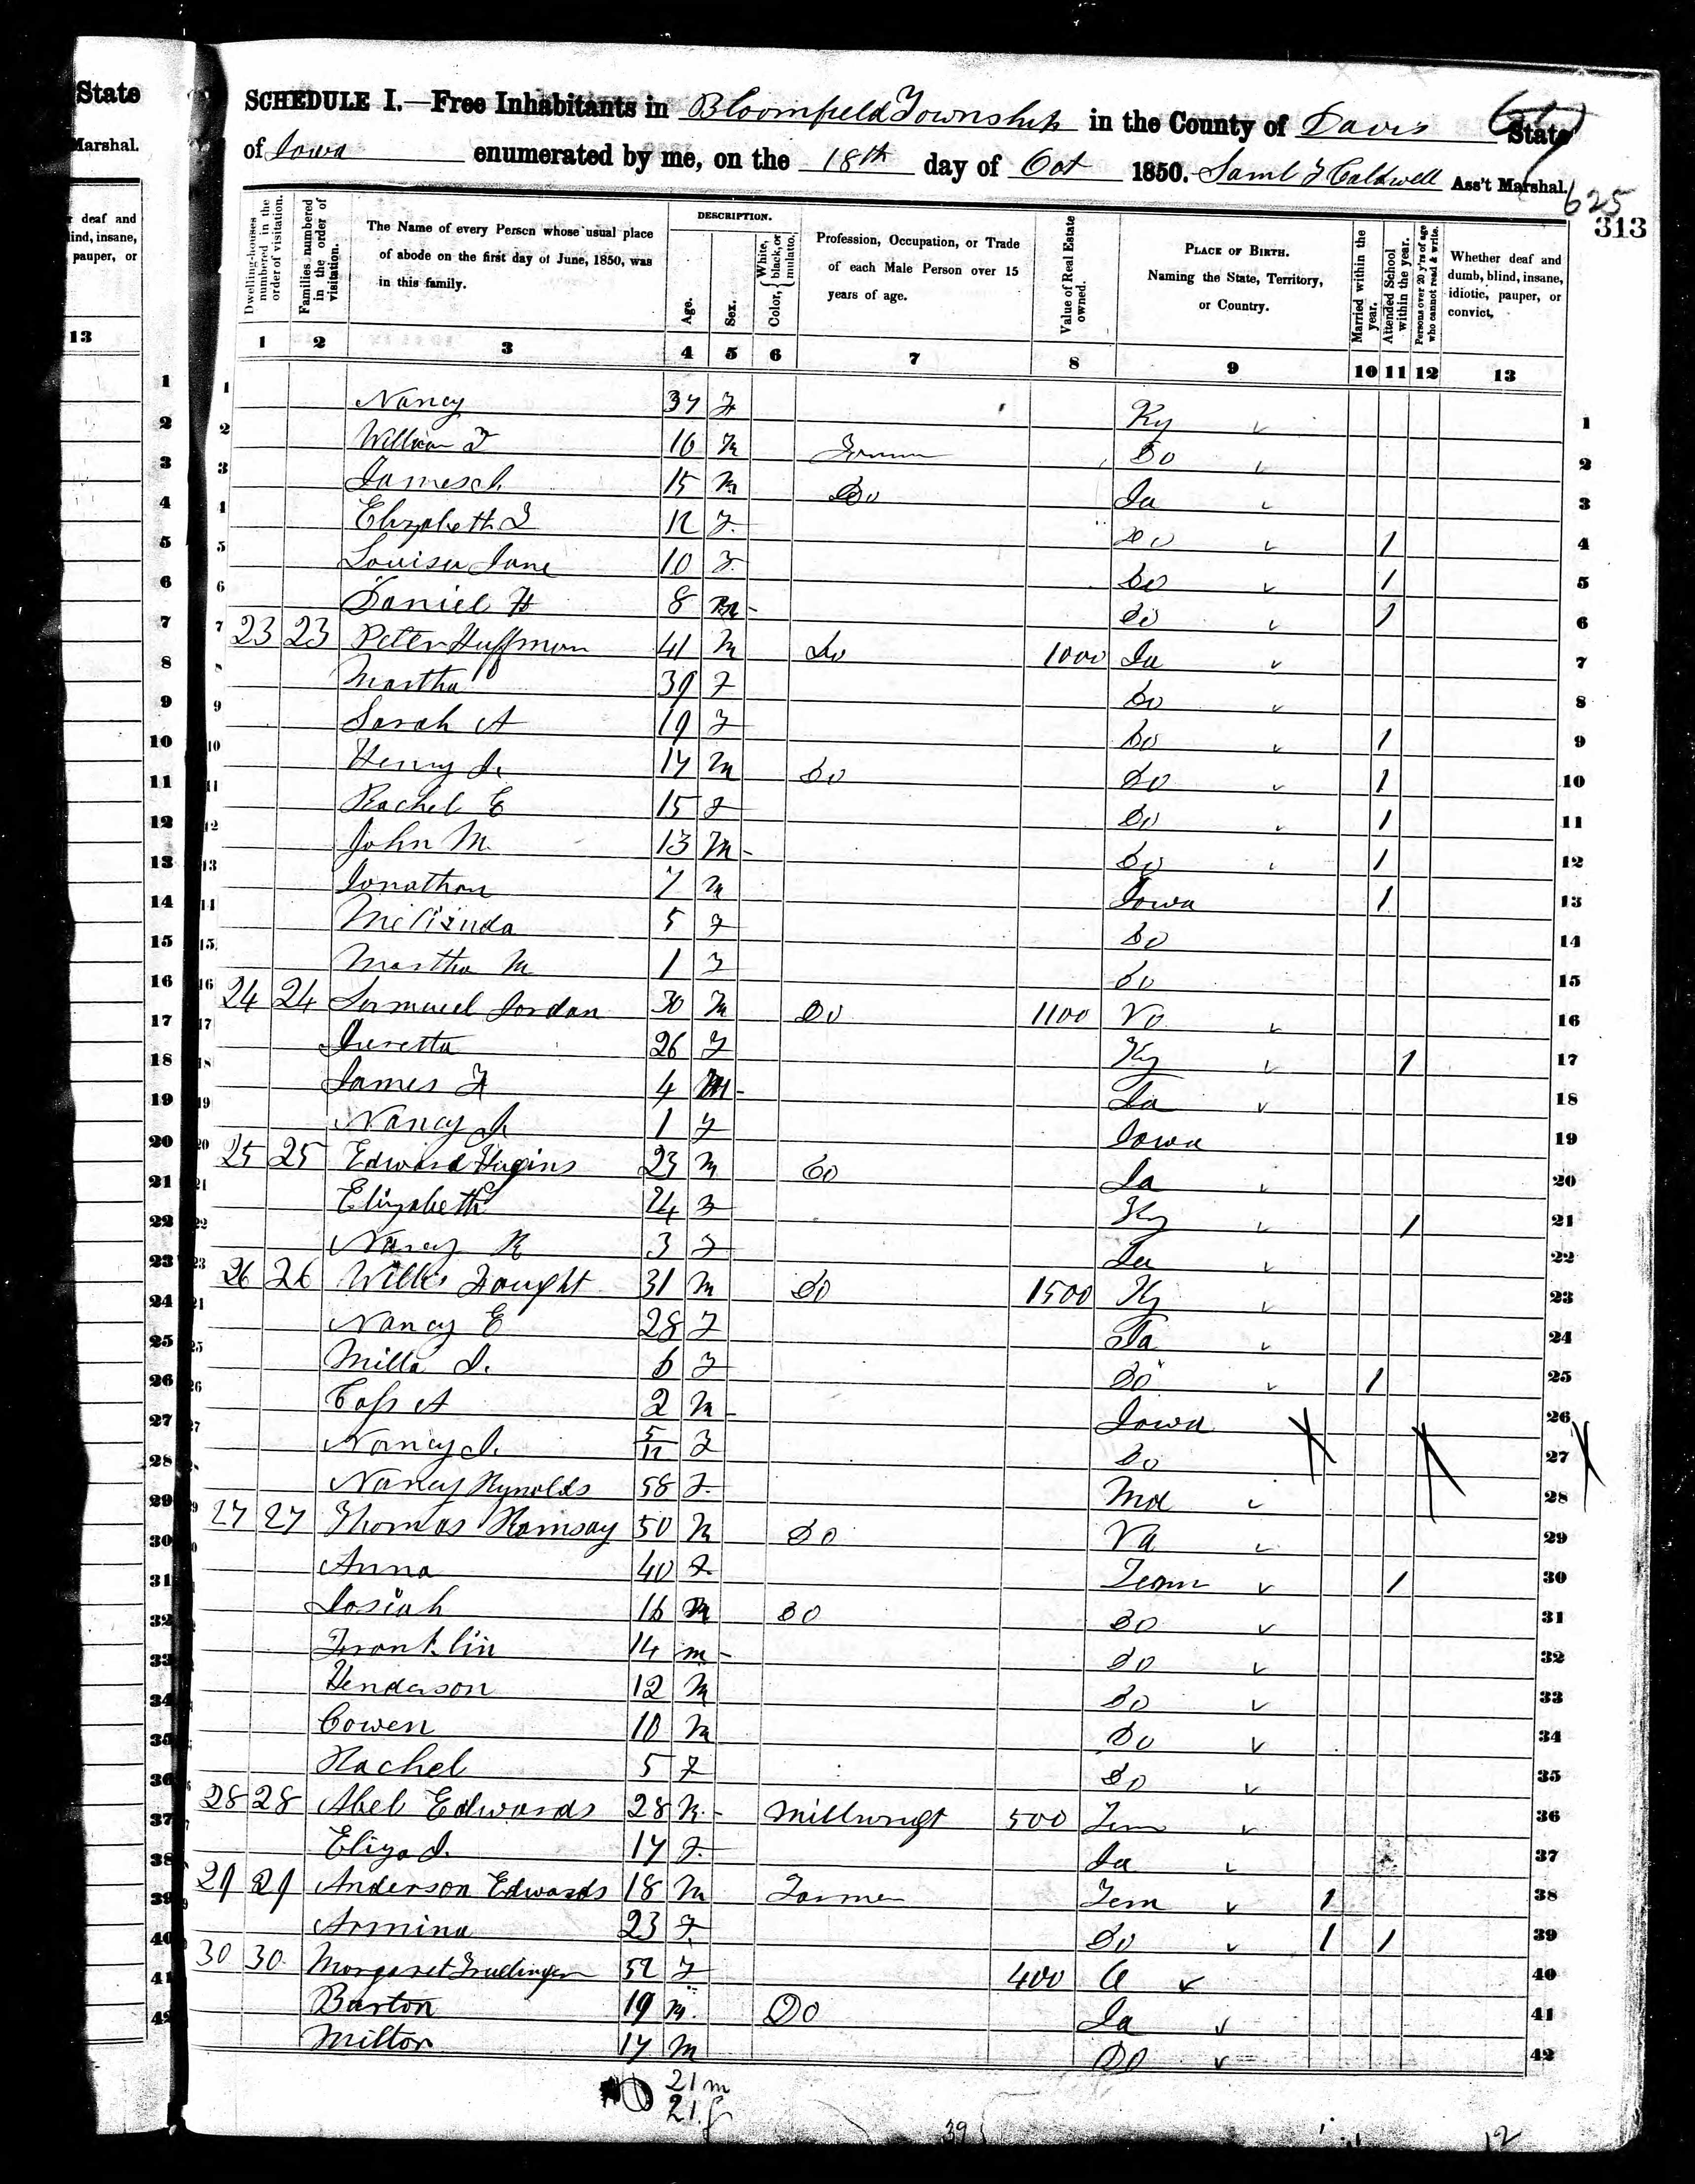 State
Marshal.
r deaf and
lind, insane,
pauper, or
13
SCHEDULE I.—Free Inhabitants in Bloomfield Township in the County of Davis State
of Iowa enumerated by me, on the 18th day of Oct 1850. Saml Caldwell Ass't Marshal.
625
313
Dwelling-houses numbered in the order of visitation.
Families numbered in the order of visitation.
The Name of every Person whose usual place of abode on the first day of June, 1850, was in this family.
DESCRIPTION.
Age.
Sex.
Color, { White, black, or mulatto.
Profession, Occupation, or Trade of each Male Person over 15 years of age.
Value of Real Estate owned.
PLACE OF BIRTH. Naming the State, Territory, or Country.
Married within the year.
Attended School within the year.
Persons over 20 y'rs of age who cannot read & write.
Whether deaf and dumb, blind, insane, idiotic, pauper, or convict,
1 2 3 4 5 6 7 8 9 10 11 12 13
1 Nancy 37 F Ky 1
2 William 16 M Farmer Do 2
3 James 15 M Do Ia 3
4 Elizabeth 12 F Do 1 4
5 Louisa Jane 10 F Do 1 5
6 Daniel H 8 M Do 1 6
7 23 23 Peter Huffman 41 M Do 1000 Ia 7
8 Martha 39 F Do 8
9 Sarah A 19 F Do 1 9
10 Henry J. 17 M Do Do 1 10
11 Rachel E 15 F Do 1 11
12 John M. 13 M Do 1 12
13 Jonathan 7 M Iowa 1 13
14 Melinda 5 F Do 14
15 Martha M 1 F Do 15
16 24 24 Samuel Jordan 30 M Do 1100 Va 16
17 Luretta 26 F Ky 1 17
18 James F 4 M Ia 18
19 Nancy J. 1 F Iowa 19
20 25 25 Edward Hugins 23 M Do Ia 20
21 Elizabeth 24 F Ky 1 21
22 Nancy 3 F Ia 22
23 26 26 Fought 31 M Do 1500 Ky 23
24 Nancy E 28 F Ia 24
25 Milla J. 6 F Do 1 25
26 Cass A 2 M Iowa 26
27 Nancy J. 5/12 F Do 27
28 Nancy Reynolds 58 F Md 28
29 27 27 Thomas Ramsay 50 M Do Va 29
30 Anna 40 F Tenn 1 30
31 Josiah 16 M Do Do 31
32 Franklin 14 M Do 32
33 Henderson 12 M Do 33
34 Cowen 10 M Do 34
35 Rachel 5 F Do 35
36 28 28 Abel Edwards 28 M Millwright 500 Tenn 36
37 Eliza J. 17 F Ia 37
38 29 29 Anderson Edwards 18 M Farmer Tenn 1 38
39 Armina 23 F Do 1 1 39
40 30 30 Margaret 52 F 400 40
41 Barton 19 M Do Ia 41
42 Milton 17 M Do 42
21 m
21 f
39
12